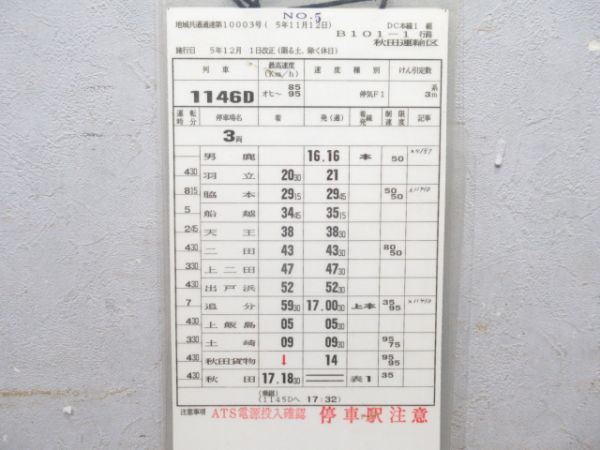 NO.5
地域共通通達第10003号( 5年11月12日)
DC本線1 組
B101-1 行路
秋田運輸区
施行日 5年12月 1日改正 (限る土、除く休日)
列車 最高速度(Km/h) 速度種別 けん引定数
1146D オヒ~ 85 95 停気F1 系 3m
運転時分 停車場名 着 発(通) 着線発 制限速度 記事
3両
男鹿 16.16 本 50
430 羽立 2030 21
815 脇本 2915 2945 50 50
5 船越 3445 3515
245 天王 38 3830
430 二田 43 4330 80 50
330 上二田 47 4730
430 出戸浜 52 5230
7 追分 5930 17.0030 上本 35 95
430 上飯島 05 0530
330 土崎 09 0930 95 75
430 秋田貨物 ↓ 14 95 95
430 秋田 17.1830 表1 35
(乗継)
(1145Dへ 17:32)
注意事項 ATS電源投入確認 停車駅注意